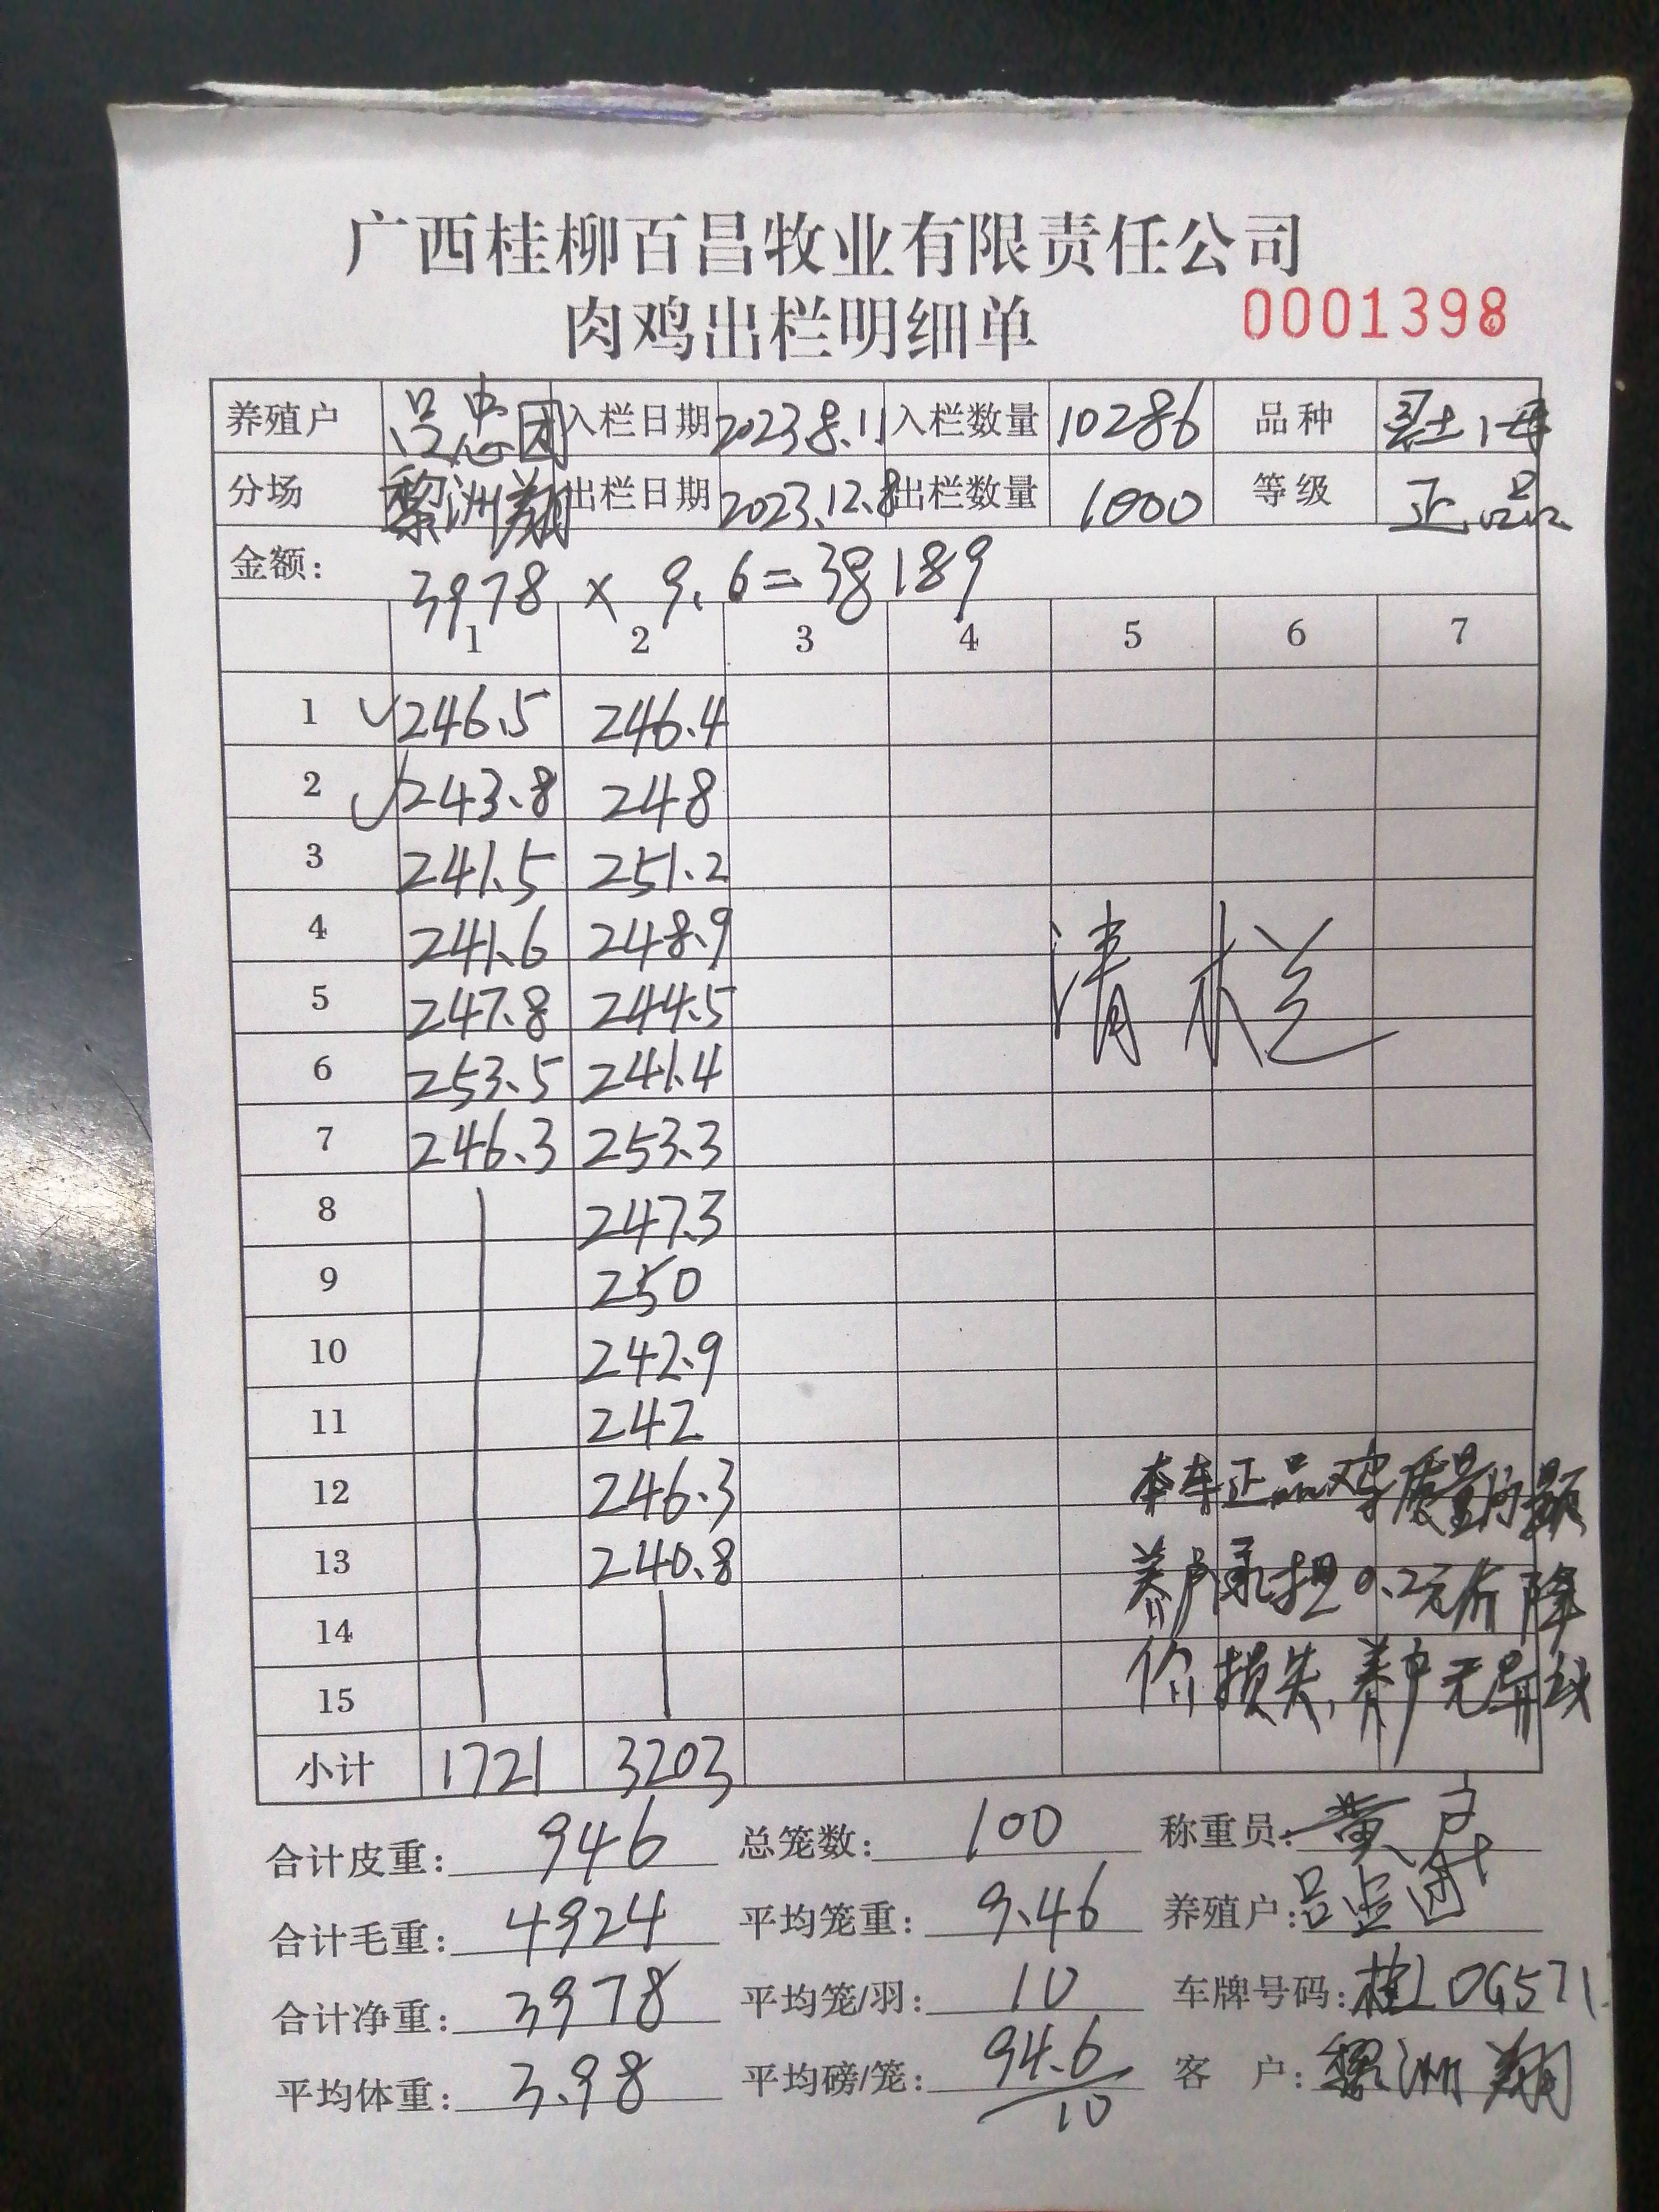 广西桂柳百昌牧业有限责任公司
肉鸡出栏明细单 0001398
养殖户 吕忠团 入栏日期 2023.8.11 入栏数量 10286 品种 土1母
分场 黎洲翔 出栏日期 2023.12.8 出栏数量 1000 等级 正品
金额: 3978 × 9.6=38189
1 2 3 4 5 6 7
1 246.5 246.4
2 243.8 248
3 241.5 251.2
4 241.6 248.9
5 247.8 244.5
6 253.5 241.4
7 246.3 253.3
8 247.3
9 250
10 242.9
11 242
12 246.3
13 240.8
14
15
清栏
本车正品鸡质量问题
养户承担0.2元/斤降
价损失,养户无异议
小计 1721 3203
合计皮重: 946 总笼数: 100 称重员: 黄
合计毛重: 4924 平均笼重: 9.46 养殖户: 吕忠团
合计净重: 3978 平均笼/羽: 10 车牌号码: 桂L0G571
平均体重: 3.98 平均磅/笼: 94.6/10 客户: 黎洲翔